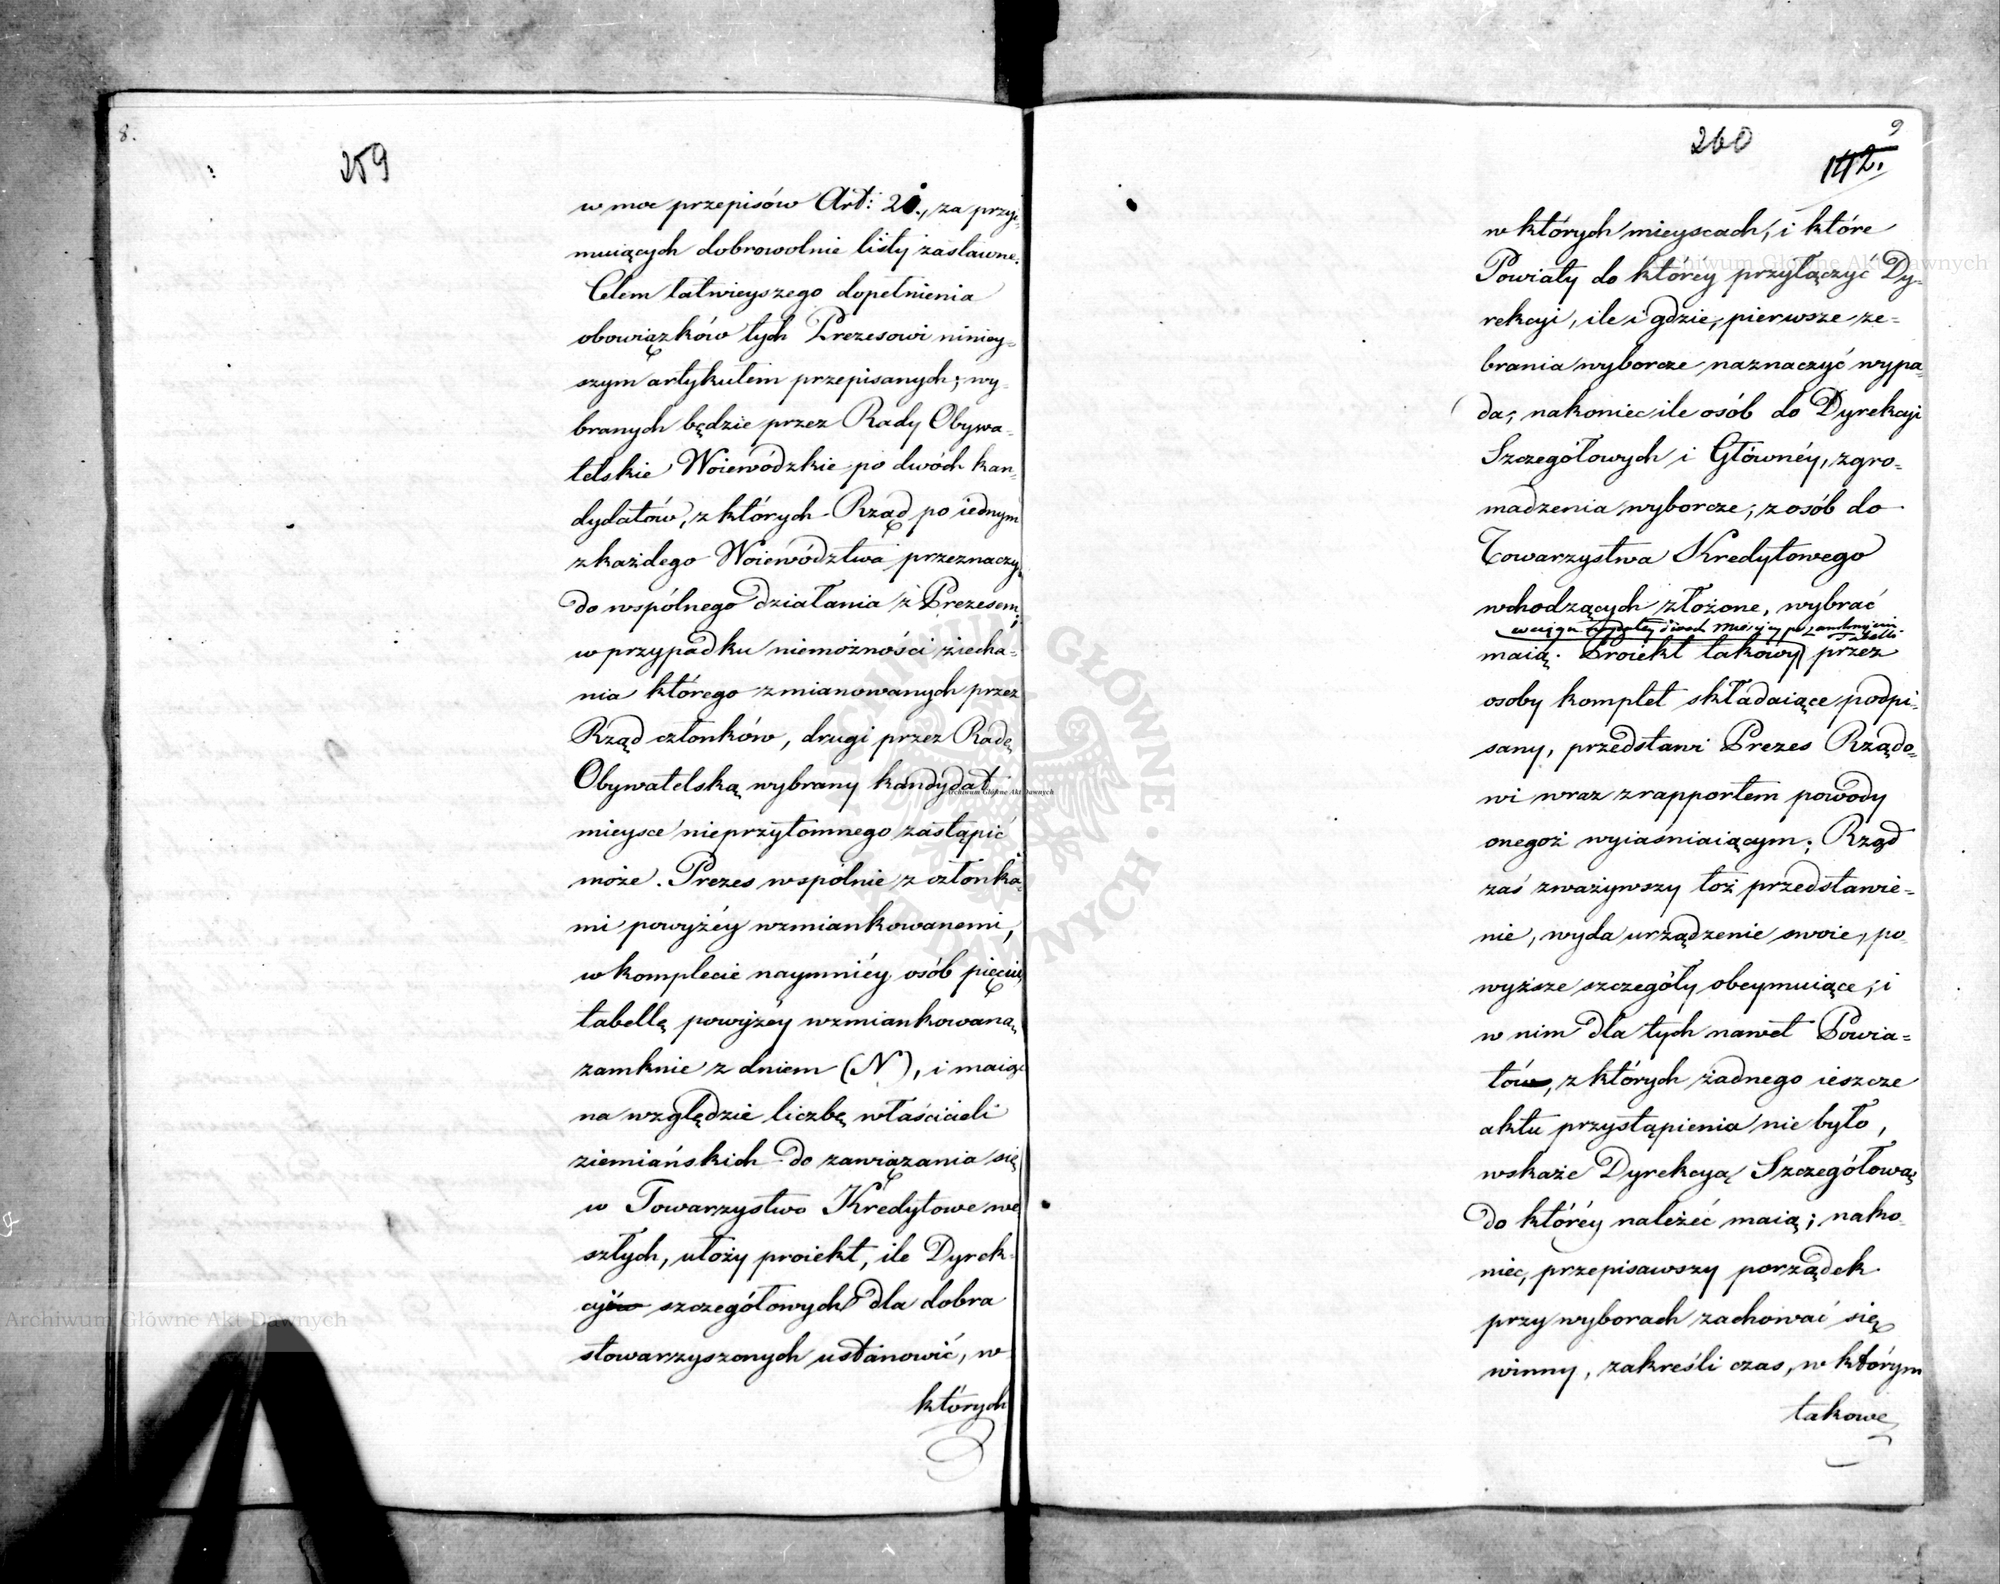 8.
259
w moc przepisów Art: 20., za przyj-
muiących dobrowolnie listy zastawne.
Celem łatwieyszego dopełnienia
obowiązków tych Prezesowi niniey-
szym artykułem przepisanych; wy-
branych będzie przez Rady Obywa-
telskie Woiewódzkie po dwóch kan-
dydatów, z których Rząd po iednym
z każdego Województwa przeznaczy,
do wspólnego działania z Prezesem;
w przypadku niemożności ziecha-
nia którego z mianowanych przez
Rząd członków, drugi przez Radę
Obywatelską wybrany kandydat,
mieysce nieprzytomnego zastąpić
może. Prezes wspólnie z członka-
mi powyżéy wzmiankowanemi,
w komplecie naymniéy osób pięciu,
tabellę powyżéy wzmiankowaną,
zamknie z dniem (N), i maiąc
na względzie liczbę właścicieli
ziemiańskich do zawiązania się
w Towarzystwo Kredytowe we-
szłych, ułoży proiekt, ile Dyrek-
cyi szczegółowych dla dobra
stowarzyszonych ustanowić, w
których
260
9
142.
w których mieyscach, i które
Powiaty do któréy przyłączyć Dy-
rekcyi, ile i gdzie, pierwsze ze-
brania wyborcze naznaczyć wypa-
da; nakoniec ile osób do Dyrekcyi
Szczegółowych i Głównéy, zgro-
madzenia wyborcze, z osób do
Towarzystwa Kredytowego
wchodzących złożone, wybrać
w ciągu dwóch Miesięcy po zamknięciu
Tabelli
maią. Proiekt takowy przez
osoby komplet składaiące podpi-
sany, przedstawi Prezes Rządo-
wi wraz z rapportem powody
onegoż wyiaśniaiącym; Rząd
zaś zważywszy toż przedstawie-
nie, wyda urządzenie swoie, po-
wyższe szczegóły obeymuiące, i
w nim dla tych nawet Powia-
tów, z których żadnego ieszcze
aktu przystąpienia nie było,
wskaże Dyrekcyą Szczegółową
do któréy należéć maią; nako-
niec, przepisawszy porządek
przy wyborach zachować się
winny, zakreśli czas, w którym
takowe
Archiwum Główne Akt Dawnych